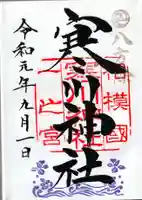 八方除
相模國
寒川神社
一之宮
令和元年九月一日